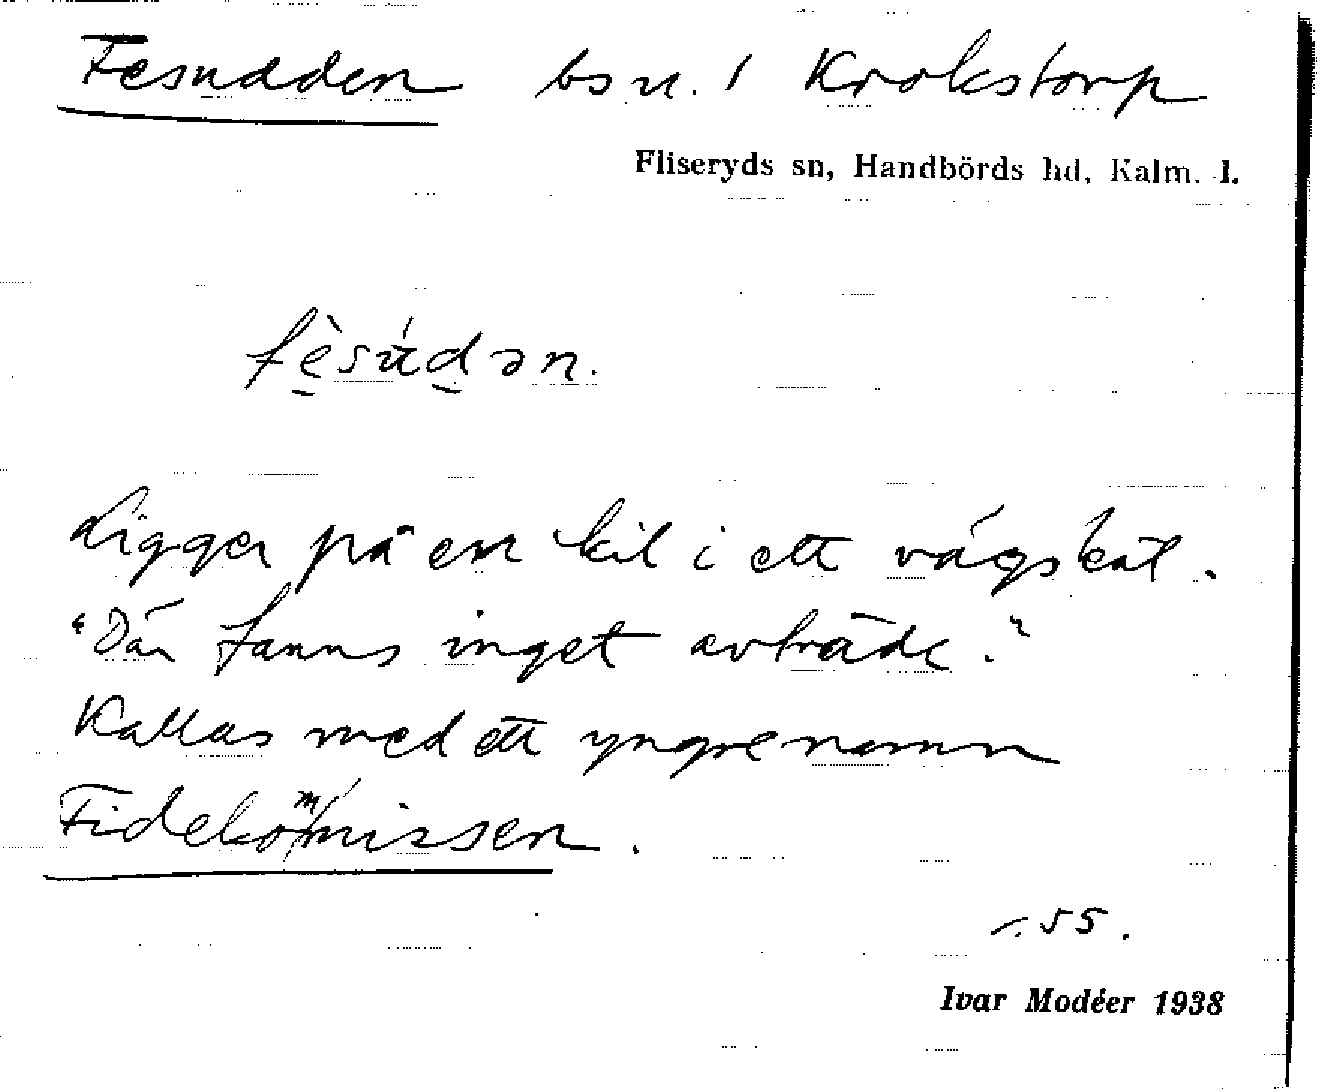 Fesudden bs u. / Krokstorp
Fliseryds sn, Handbörds hd, Kalm. l.
fè̱sú̇ḏən.
Ligger på en kil i ett vägskäl.
"Där fanns inget avträde."
Kallas med ett yngre namn
Fidekommissen.
÷ 55.
Ivar Modéer 1938